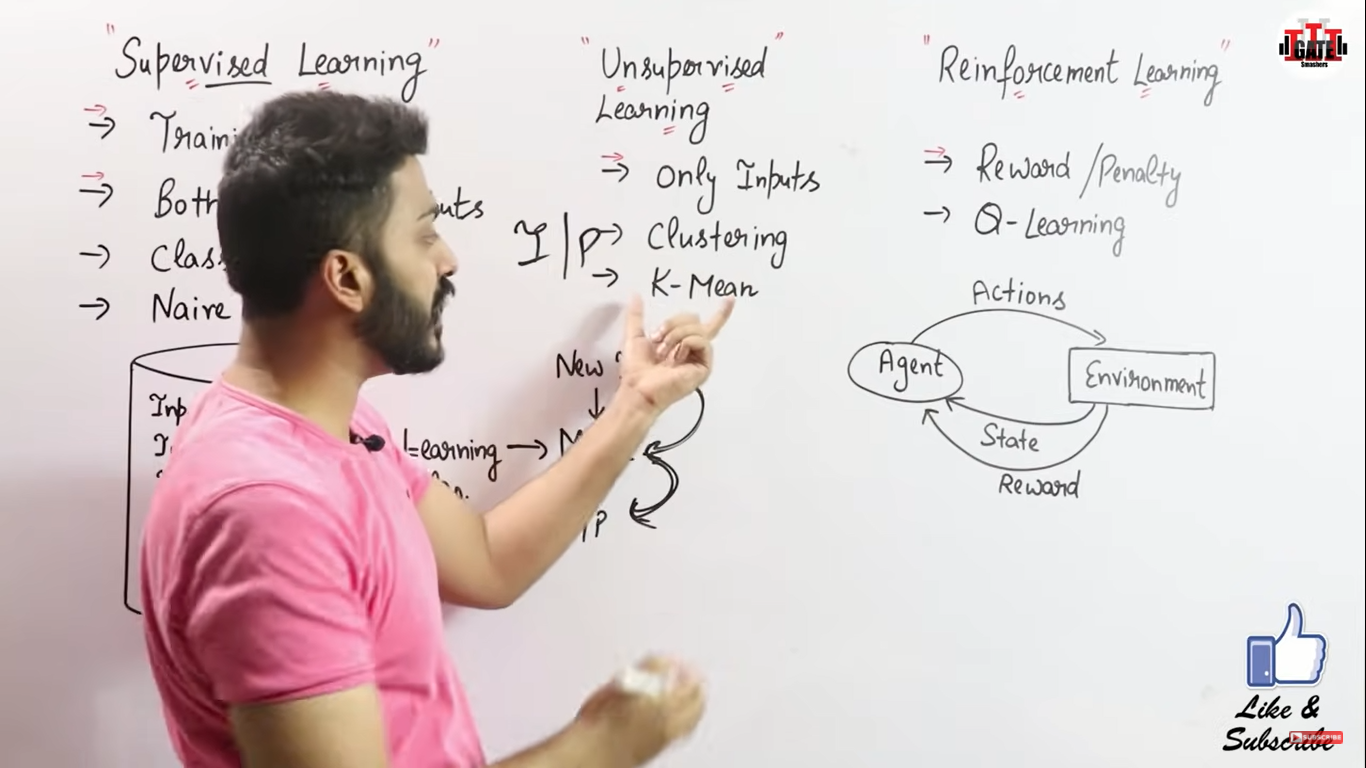 "Supervised Learning"
→ 
→ Both
→
→ Naive
Learning →
"Unsupervised
Learning"
→ Only Inputs
I/P → Clustering
→ K-Mean
New
"Reinforcement Learning"
→ Reward/Penalty
→ Q-Learning
Actions
Agent
Environment
State
Reward
GATE
Smashers
Like &
Subscribe
SUBSCRIBE